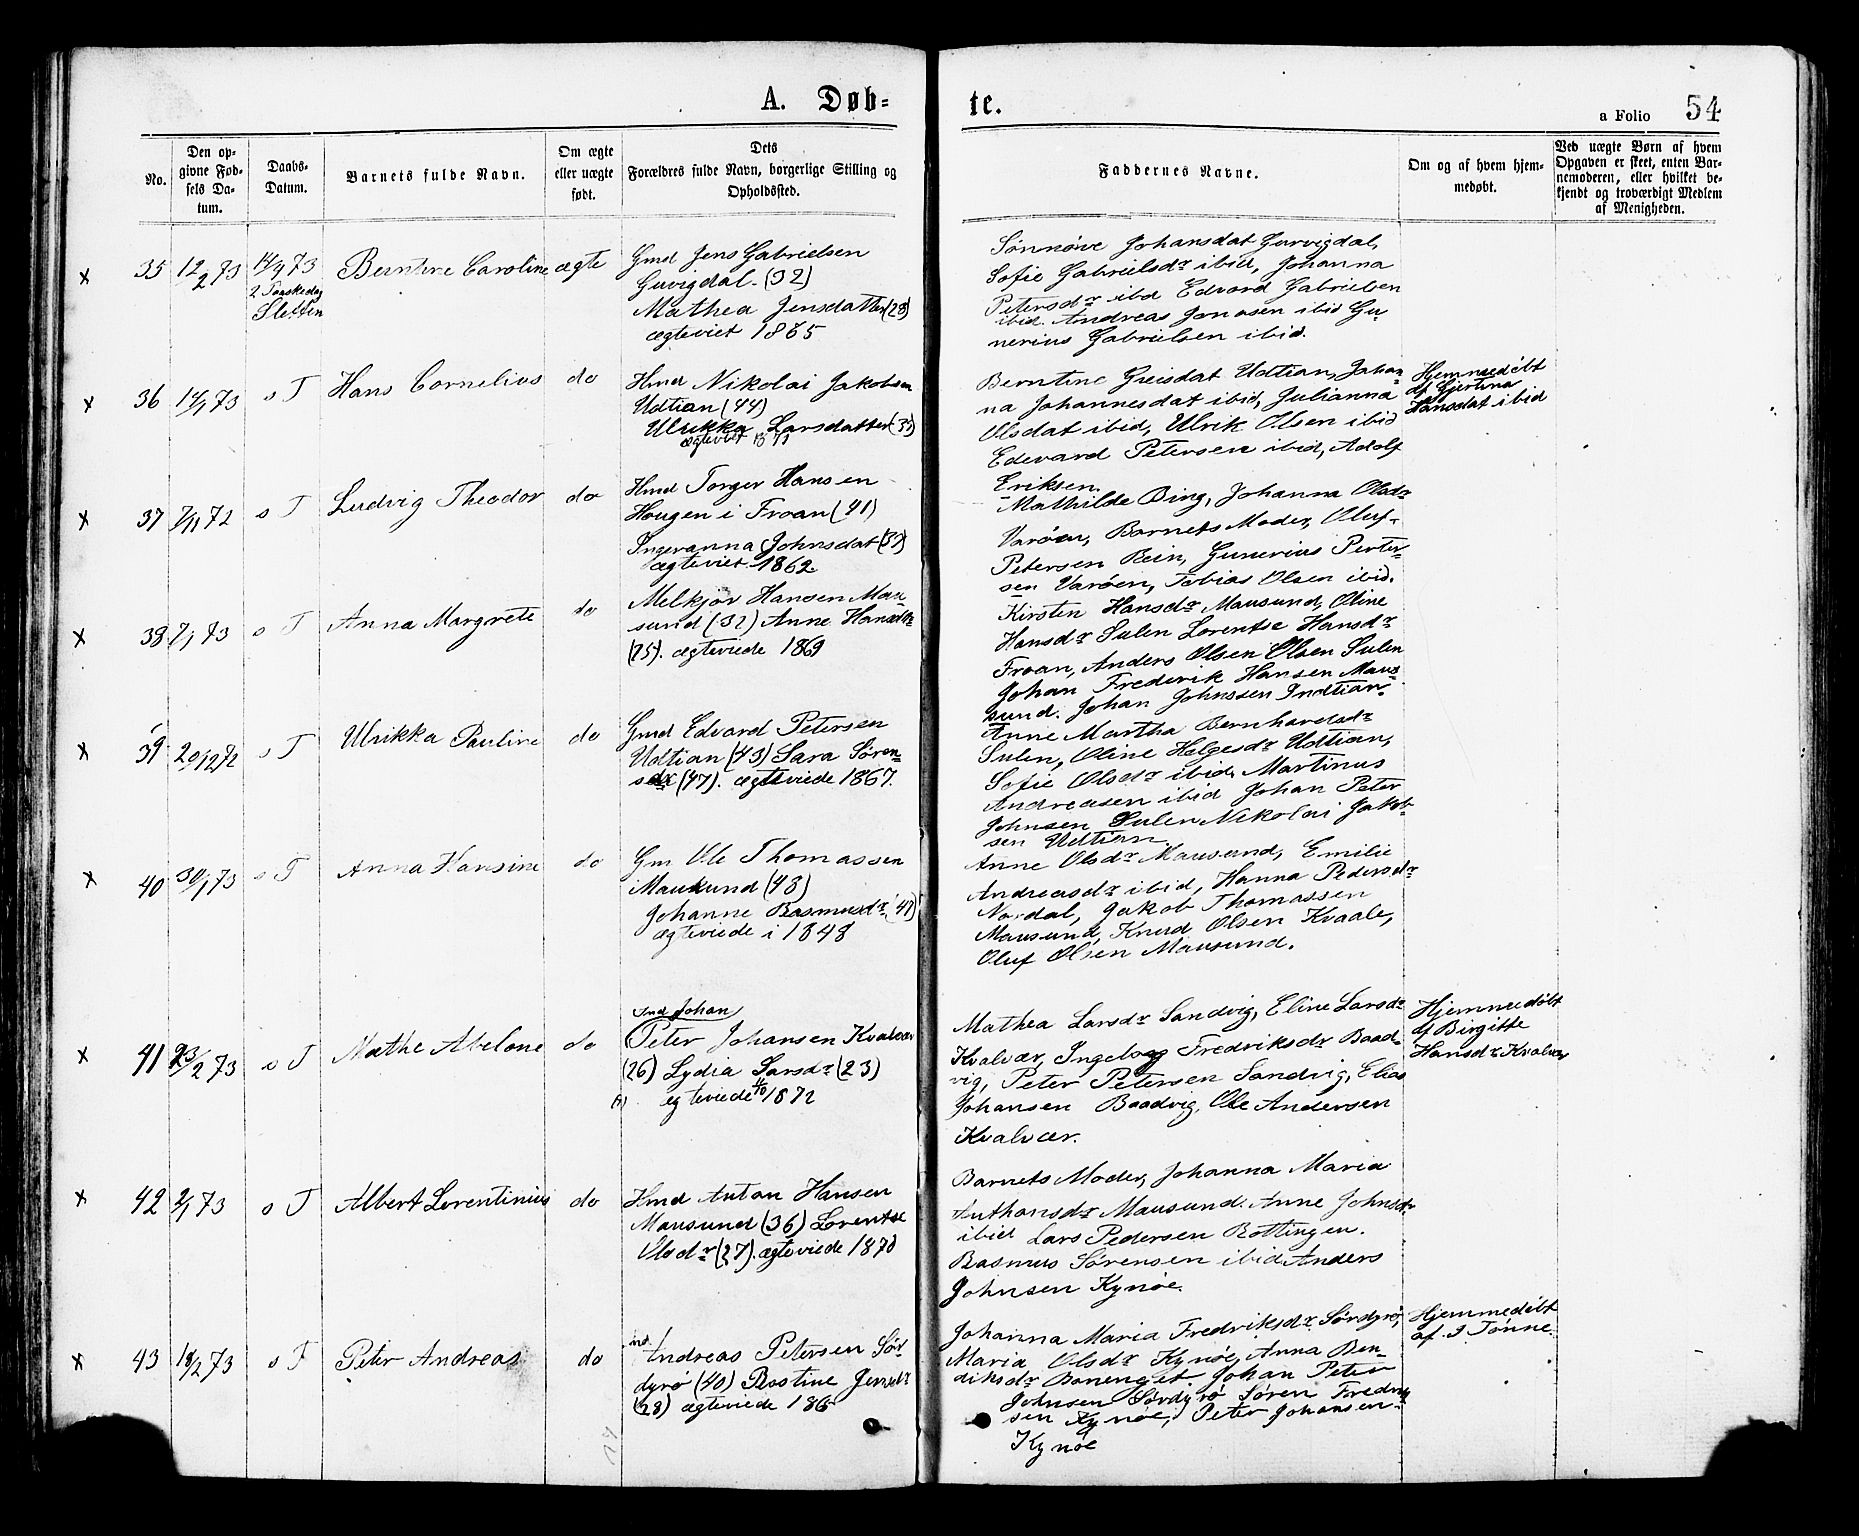 A. Døb-
te.
a Folio 54
No.
Den op-
givne Fød-
sels Da-
tum.
Daabs-
Datum.
Barnets fulde Navn.
Om ægte
eller uægte
født.
Dets
Forældres fulde Navn, borgerlige Stilling og
Opholdssted.
Faddernes Navne.
Om og af hvem hjem-
medøbt.
Ved uægte Børn af hvem
Opgaven er skeet, enten Bar-
nemoderen, eller hvilket be-
kjendt og troværdigt Medlem
af Menigheden.
x 35 12/2 73 14/4 73
2 Paaskedag
Sletten
Berntine Caroline ægte
Gmd Jens Gabrielsen
Gurvigdal. (32)
Mathea Jensdatter (28)
ægteviet 1865
Sønnøve Johansdat Gurvigdal,
Sofie Gabrielsdr ibid, Johanna
Petersdr ibd Edvard Gabrielsen
ibid. Andreas Jonasen ibid Gu-
nerius Gabrielsen ibid.
x 36 14/1 73 s T Hans Cornelius do
Hmd Nikolai Jakobsen
Udtian (44)
Ulrikka Larsdatter
Berntine Greisdat Udtian, Johan-
na Johannesdat ibid, Julianna
Olsdat ibid, Ulrik Olsen ibid
Edevard Petersen ibid, Adolf
Eriksen.
Hjemmedøbt
af Gjertina
Hansdat ibid
x 37 7/11 72 s T Ludvig Theodor do
Hmd Torger Hansen
Hougen i Froan (41)
Ingeranna Johnsdat (37)
ægteviet 1862
Mathilde Bing, Johanna Olsdr
Varøen, Barnets Moder, Oluf
Petersen Rein, Gunerius Peter-
sen Varøen, Tobias Olsen ibid.
x 38 7/1 73 s T Anna Margrete do
Melkjør Hansen Mau-
sund (32) Anne Hansdtr
(25). ægteviede 1869
Kirsten Hansdr Mausund, Oline
Hansdr Sulen Lorentse Hansdr
Froan, Anders Olsen Olsen Sulen
Johan Frederik Hansen Mau-
sund. Johan Johnssen Indtian
x 39 20/12 72 s T Ulrikka Pauline do
Gmd Edvard Petersen
Udtian (43) Sara Søren-
sdr (47). ægteviede 1867.
Anne Martha Bernhardsdr
Sulen, Oline Helgesdr Udtian,
Sofie Olsdr ibid, Martinus
Andreasen ibid Johan Peter
Johnsen Sulen Nikolai Jakob-
sen Udtian.
x 40 30/1 73 s T Anna Hansine do
Gm Ole Thomassen
Mausund (48)
Johanne Rasmusdr (47)
ægteviede i 1848
Anne Olsdr Mausund, Emilie
Andreasdr ibid, Hanna Pedersdr
Nordal, Jakob Thomassen
Mausund, Knud Olsen Kvaale,
Oluf Olsen Mausund.
x 41 23/2 73 s T Mathe Abelone do
Ind Johan
Peter Johansen Kvalvær
(26) Lydia Larsdr (23)
egteviede 1872
Mathea Larsdr Sandvig, Eline Larsdr
Kvalvær, Ingeborg Fredriksdr Baad-
vig, Peter Petersen Sandvig, Elias
Johansen Baadvig, Ole Andersen
Kvalvær.
Hjemmedøbt
af Birgitte
Hansdr Kvalvær
x 42 2/1 73 s T Albert Lorentinius do
Hmd Antan Hansen
Mausund (36) Lorentse
Olsdr (27). ægteviede 1870
Barnets Moder, Johanna Maria
Anthonsdr Mausund. Anne Johnsdr
ibid Lars Pedersen Bottingen.
Rasmus Sørensen ibid Anders
Johnsen Kynøe.
x 43 18/2 73 s T Peter Andreas do
ind.
Andreas Petersen Sør-
dyrø (40) Bastine Jensdr
(28) ægteviede 186
Johanna Maria Fredriksdr Sørdyrø,
Maria Olsdr Kynøe, Anna Ben-
diksdr Borenget Johan Peter
Johnsen Sørdyrø Søren Fredrik-
sen Kynøe, Peter Johansen
Kynøe
Hjemmedøbt
af. J Tønne